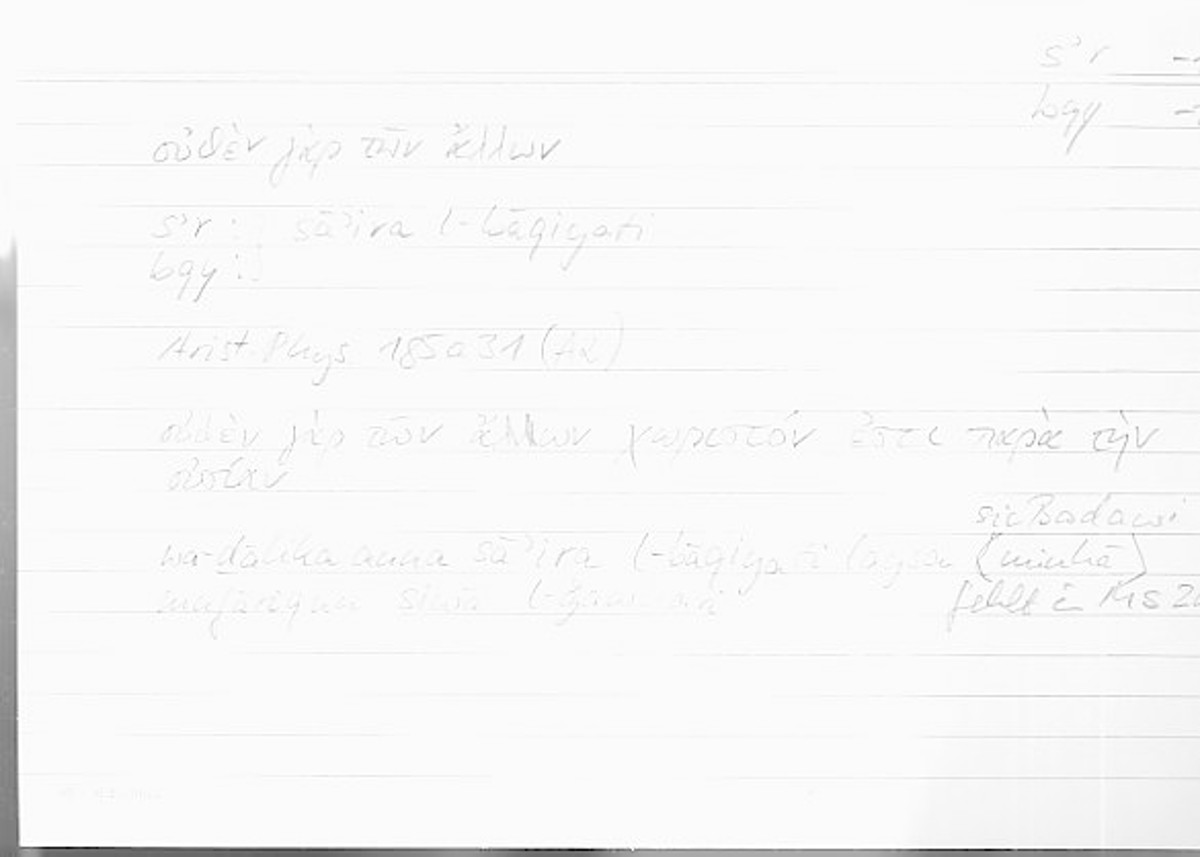 sʾr
bqy
οὐδὲν γὰρ τῶν ἄλλων
sʾr : sāʾira l-bāqiyati
bqy :
Arist. Phys 185a31 (A2)
οὐδὲν γὰρ τῶν ἄλλων χωριστόν ἐστι παρὰ τὴν
οὐσίαν
sic Badawi
wa-ḏālika anna sāʾira l-bāqiyati laysa (minhā)
mufāriqan siwā l-ǧawhari fehlt in MS